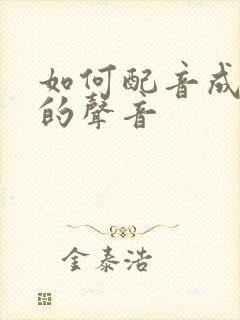 如何配音成
的聲音
金泰浩